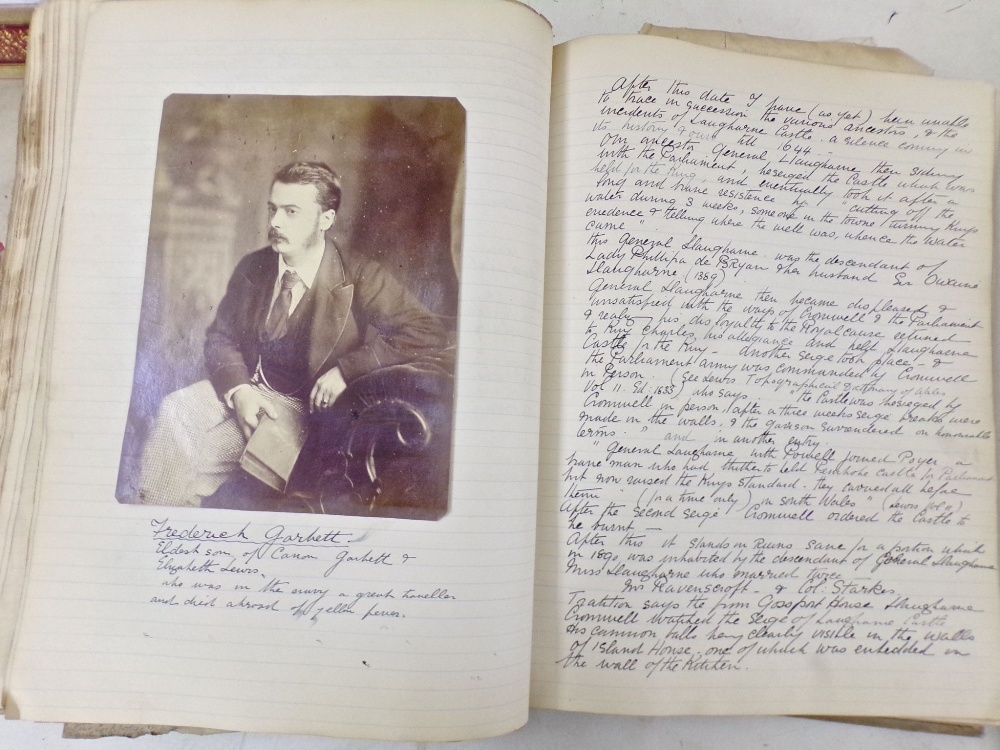 Frederick Garbett.
Eldest son, of Canon Garbett &
Elizabeth Lewis.
who was in the navy a great traveller
and died abroad of yellow fever.
After this date I have (as yet) been unable
to trace in succession the various ancestors, & the
incidents of Laugharne Castle. a silence coming in
its history till 1644 -
Our ancestor General Llaugharne, then siding
with the Parliament, beseiged the Castle which was
held for the King, and eventually took it after a
long and brave resistence by "cutting off the
water during 3 weeks, someone in the towne turning Kings
evedence & telling where the well was, whence the water
came".
This General Llaugharne was the descendant of
Lady Phillipa de Bryan & her husband Sir Owaine
Llaugharne (1389)
General Llaugharne then became displeased &
unsatisfied with the ways of Cromwell & the Parliament
& his disloyalty to the Royal cause, returned
to King Charles his allegiance and held Llaugharne
Castle for the King - Another seige took place, &
the Parliament army was commanded by Cromwell
in Person. (See Lewis Topographical Dictionary of Wales
Vol II. Ed: 1833) who says. "the Castle was beseiged by
Cromwell in person, after a three weeks seige breaches were
made in the walls, & the garison surrendered on honourable
terms." and in another entry.
"General Laugharne with Powell joined Poyer a
brave man who had thitherto held Pembroke Castle for Parliament
but now raised the Kings standard. they carried all before
them" (for a time only) in South Wales" (Lewis Vol II)
After the second seige Cromwell ordered the Castle to
be burnt -
After this it stands in Ruins save for a portion which
in 1890, was inhabited by the descendant of General Llaugharne
Miss Llaugharne who married twice
Mr Ravenscroft - & Col: Starke.
Tradition says the from Gosport House Llaugharne
Cromwell watched the Seige of Laugharne Castle
His cannon balls being clearly visible in the walls
of Island House, one of which was embedded in
the wall of the Kitchen.